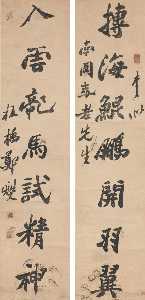 搏海鯤鵬開羽翼
南園老先生
入雲龍馬試精神
板橋鄭燮